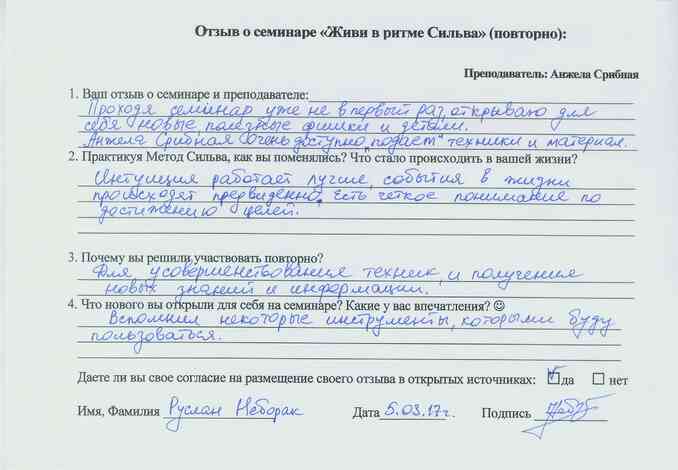 Отзыв о семинаре «Живи в ритме Сильва» (повторно):
Преподаватель: Анжела Срибная
1. Ваш отзыв о семинаре и преподавателе:
Проходя семинар уже не в первый раз, открываю для
себя новые, полезные фишки и детали.
Анжела Срибная очень доступно „подает“ техники и материал.
2. Практикуя Метод Сильва, как вы поменялись? Что стало происходить в вашей жизни?
Интуиция работает лучше, события в жизни
происходят предвиденно, есть четкое понимание по
достижению целей.
3. Почему вы решили участвовать повторно?
Для усовершенствования техник, и получения
новых знаний и информации.
4. Что нового вы открыли для себя на семинаре? Какие у вас впечатления? ☺
Вспомнил некоторые инструменты, которыми буду
пользоваться.
Даете ли вы свое согласие на размещение своего отзыва в открытых источниках: ☑ да ☐ нет
Имя, Фамилия Руслан Неборак Дата 5.03.17г. Подпись